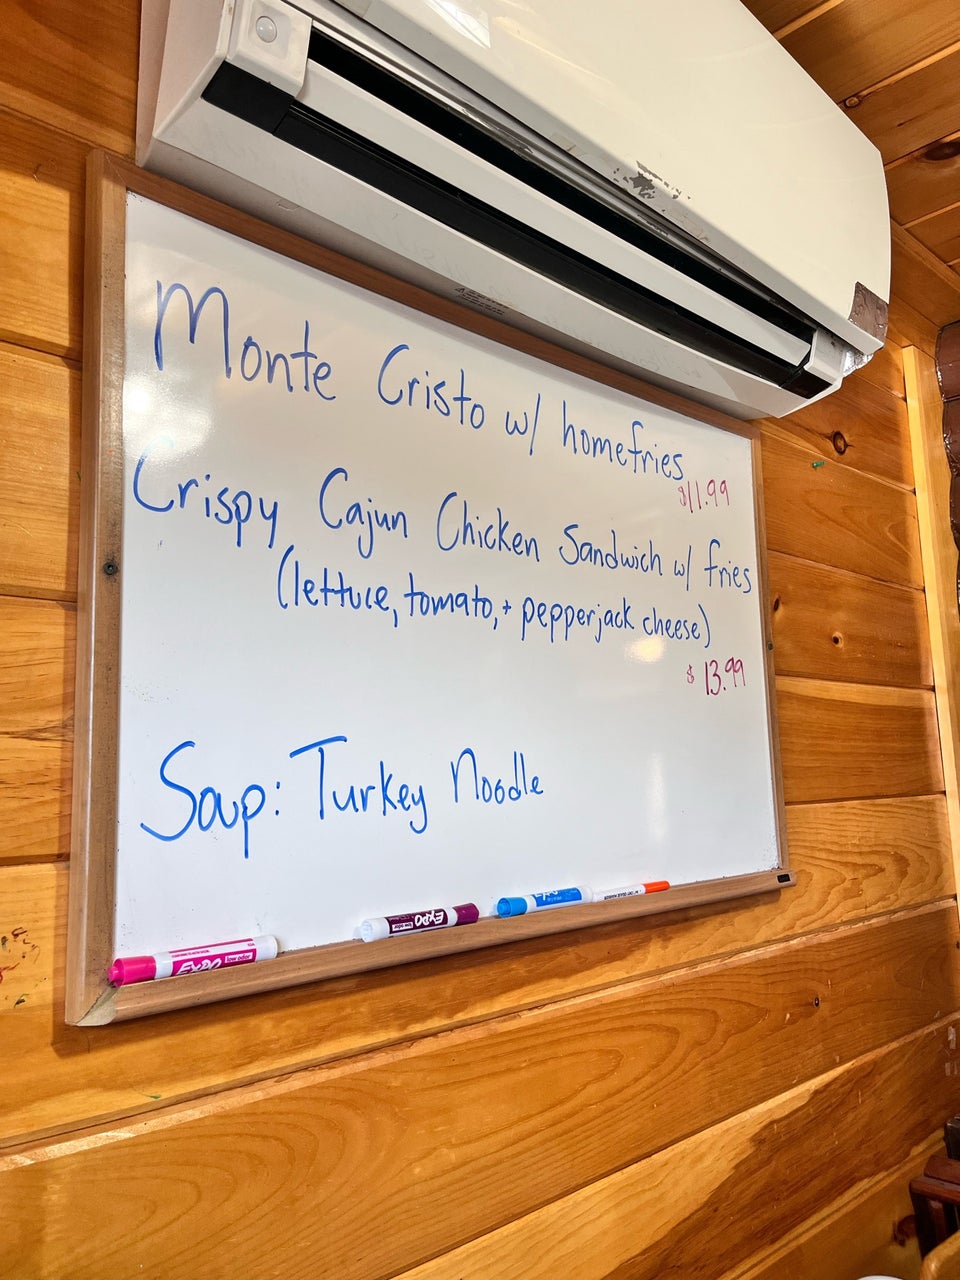 Monte Cristo w/ homefries
$11.99
Crispy Cajun Chicken Sandwich w/ fries
(lettuce, tomato, + pepperjack cheese)
$13.99
Soup: Turkey Noodle
EXPO
low odor
EXPO
low odor